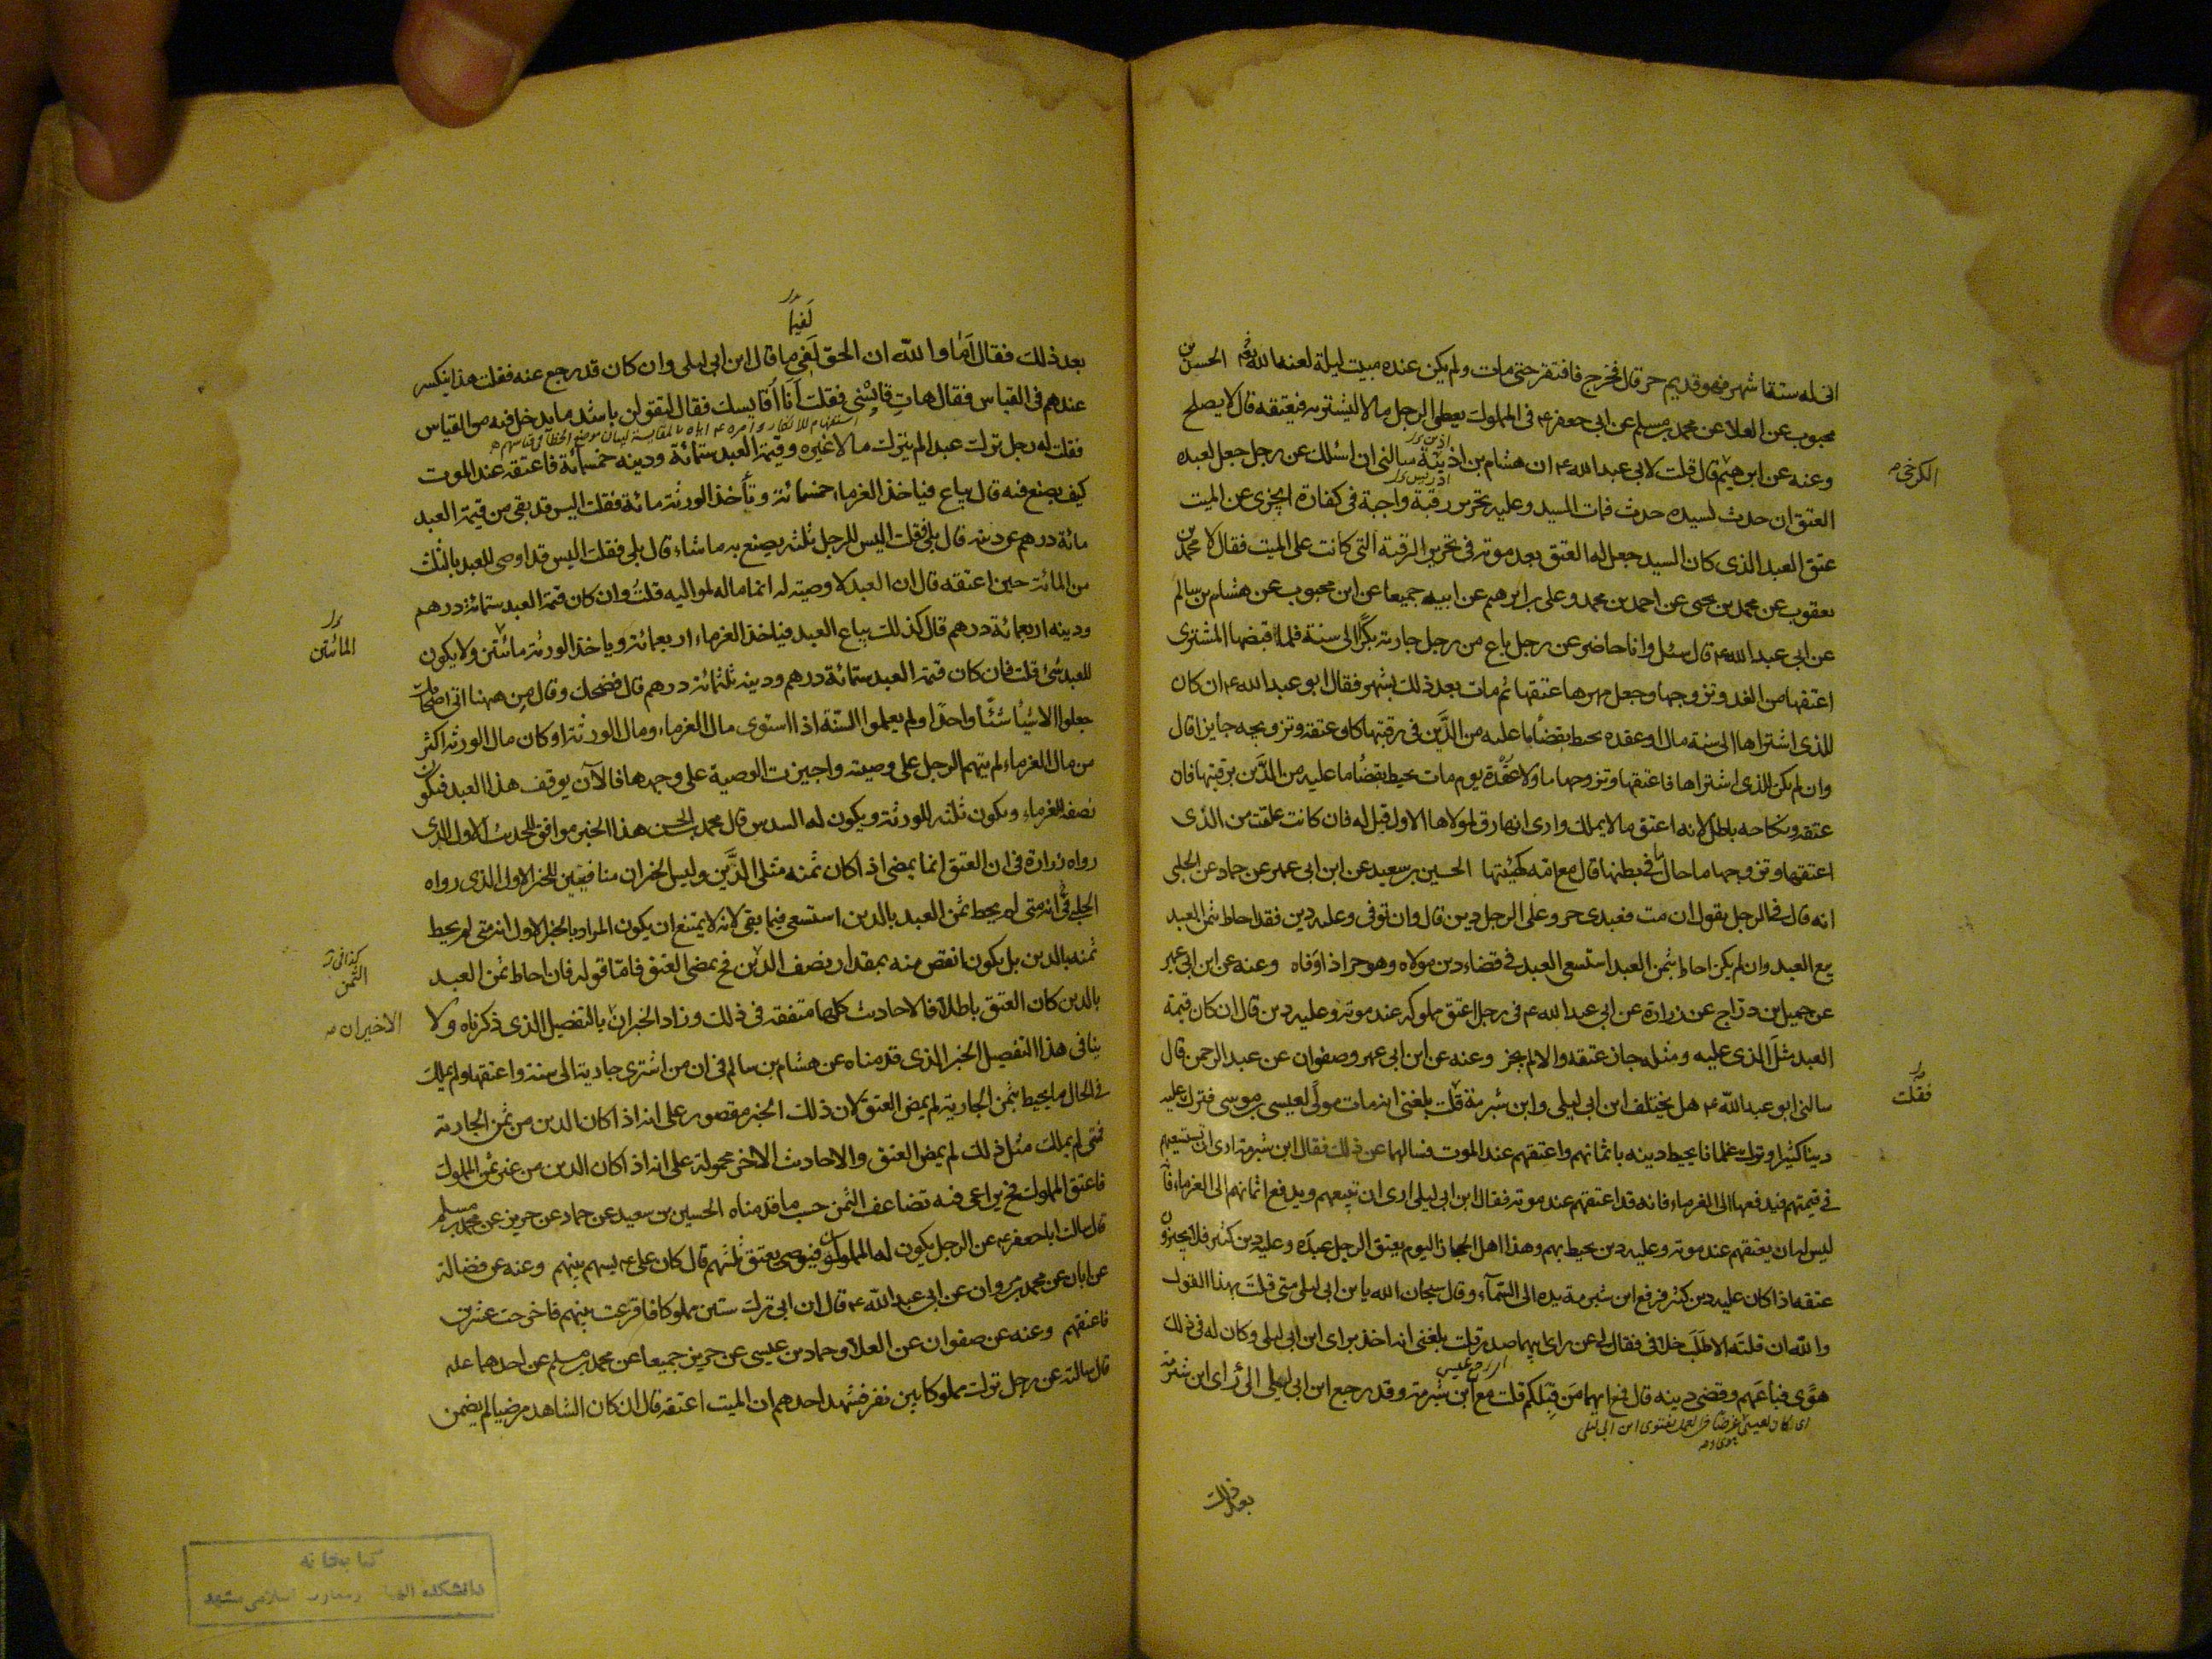 اتى له ستة اشهر فهو قديم حر قال فخرج فافتقر حتى مات ولم يكن عنده مبيت ليلة لعنه الله الحسن بن
محبوب عن العلا عن محمد بن مسلم عن ابى جعفر ع فى المملوك يعطى الرجل مالا ليشتريه فيعتقه قال لا يصلح
وعنه عن ابرهيم قال قلت لابى عبد الله ع ان هشام بن اذينة سالنى ان اسئلك عن رجل جعل لعبده
الكرخى
اذين
ادريس
العتق ان حدث لسيده حدث فمات السيد وعليه تحرير رقبة واجبة فى كفارة ايجزى عن الميت
عتق العبد الذى كان السيد جعل له العتق بعد موته فى تحرير الرقبة التى كانت على الميت فقال لا محمد بن
يعقوب عن محمد بن يحيى عن احمد بن محمد وعلى بن ابرهيم عن ابيه جميعا عن ابن محبوب عن هشام بن سالم
عن ابى عبد الله ع قال سئل وانا حاضر عن رجل باع من رجل جارية بكرا الى سنة فلما قبضها المشترى
اعتقها من الغد وتزوجها وجعل مهرها عتقها ثم مات بعد ذلك بشهر فقال ابو عبد الله ع ان كان
للذى اشتراها الى سنة مال او عقده يحيط بقضاء ما عليه من الدين فى رقبتها كان عتقه وتزويجه جايز اقال
وان لم يكن للذى اشتراها فاعتقها وتزوجها مال ولا عقدة يوم مات يحيط بقضاء ما عليه من الدين برقبتها فان
عتقه ونكاحه باطل لانه اعتق ما لا يملك وارى انها رق لمولاها الاول قيل له فان كانت علقت من الذى
اعتقها وتزوجها ما حال ما فى بطنها قال مع امه كهيئتها الحسين بن سعيد عن ابن ابى عمير عن حماد عن الحلبى
انه قال فى الرجل يقول ان مت فعبدى حر وعلى الرجل دين قال وان توفى وعليه دين فقد احاط بثمن العبد
بيع العبد وان لم يكن احاط بثمن العبد استسعى العبد فى قضاء دين مولاه وهو حر اذا وفاه وعنه عن ابن ابى عمير
عن جميل بن دراج عن زرارة عن ابى عبد الله ع فى رجل اعتق مملوكه عند موته وعليه دين قال ان كان قيمة
العبد مثل الذى عليه ومثله جاز عتقه والا لم يجز وعنه عن ابن ابى عمير وصفوان عن عبد الرحمن قال
سالنى ابو عبد الله ع هل يختلف ابن ابى ليلى وابن شبرمة قلت بلغنى انه مات مولى لعيسى بن موسى فترك عليه
فقلت
دينا كثيرا وترك غلمانا يحيط دينه باثمانهم واعتقهم عند الموت فسالهما عن ذلك فقال ابن شبرمة ارى ان تستسعيهم
فى قيمتهم فيدفعها الى الغرماء فانه قد اعتقهم عند موته فقال ابن ابى ليلى ارى ان تبيعهم ويدفع اثمانهم الى الغرماء فانه
ليس له ان يعتقهم عند موته وعليه دين يحيط بهم وهذا اهل الحجاز اليوم يعتق الرجل عبده وعليه دين كثير فلا يجيزون
عتقه اذا كان عليه دين كثير فرفع ابن شبرمة يده الى السماء وقال سبحان الله يا بن ابى ليلى متى قلت بهذا القول
والله ان قلته الا طلب خلافى فقال لى عن راى ايهما صدر قلت بلغنى انه اخذ براى ابن ابى ليلى وكان له فى ذلك
هوى فباعهم وقضى دينه قال فمع ايهما من قبلكم قلت مع ابن شبرمة وقد رجع ابن ابى ليلى الى راى ابن شبرمة
بعد ذلك
لفيما
بعد ذلك فقال اما والله ان الحق لفى ما قال ابن ابى ليلى وان كان قد رجع عنه فقلت هذا ينكسر
عندهم فى القياس فقال هات قايسنى فقلت انا اقايسك فقال لتقولن باشد ما يدخل فيه من القياس
فقلت له رجل ترك عبدا لم يترك مالا غيره وقيمة العبد ستمائة ودينه خمسمائة فاعتقه عند الموت
كيف يصنع فيه قال يباع فياخذ الغرماء خمسمائة وتأخذ الورثة مائة فقلت اليس قد بقى من قيمة العبد
مائة درهم عن دينه قال بلى فقلت اليس للرجل ثلثه يصنع به ما شاء قال بلى فقلت اليس قد اوصى للعبد بالثلث
من المائة حين اعتقه قال ان العبد لا وصية له انما ماله لمواليه قلت وان كان قيمة العبد ستمائة درهم
ودينه اربعمائة درهم قال كذلك يباع العبد فياخذ الغرماء اربعمائة وياخذ الورثة مائتين ولا يكون
المائتين
للعبد شئ قلت فان كان قيمة العبد ستمائة درهم ودينه ثلثمائة درهم قال فضحك وقال من ههنا اتى اصحابك
جعلوا الاشياء شيئا واحدا ولم يعلموا السنة اذا استوى مال الغرماء ومال الورثة او كان مال الورثة اكثر
من مال الغرماء لم يتهم الرجل على وصيته واجيزت الوصية على وجهها فالآن يوقف هذا العبد فيكون
نصفه للغرماء ويكون ثلثه للورثة ويكون له السدس قال محمد بن الحسن هذا الخبر موافق للحديث الاول الذى
رواه زرارة فى ان العتق انما يمضى اذا كان ثمنه مثلى الدين وليس الخبران منافيين للخبر الاول الذى رواه
الحلبى فى انه متى لم يحط ثمن العبد بالدين استسعى فيما بقى لانه لا يمتنع ان يكون المراد بالخبر الاول انه متى لم يحط
ثمنه بالدين بل يكون انقص منه بمقدار نصف الدين فح يمضى العتق فاما قوله فان احاط ثمن العبد
الثمن
بالدين كان العتق باطلا فالاحاديث كلها متفقة فى ذلك وزاد الخبران بالتفصيل الذى ذكرناه ولا
الاخيران
ينافى هذا التفصيل الخبر الذى قدمناه عن هشام بن سالم فى ان من اشترى جارية الى سنة واعتقها ولم يملك
فى الحال ما يحيط بثمن الجارية لم يمض العتق لان ذلك الخبر مقصور على انه اذا كان الدين من ثمن الجارية
فمتى لم يملك مثل ذلك لم يمض العتق والاحاديث الاخر محمولة على انه اذا كان الدين من غير ثمن المملوك
فاعتق المملوك فح يراعى فيه تضاعف الثمن حسب ما قدمناه الحسين بن سعيد عن حماد عن حريز عن محمد بن مسلم
قال سالت ابا جعفر ع عن الرجل يكون له المملوكون فيوصى بعتق ثلثهم قال كان على ع يسهم بينهم وعنه عن فضالة
عن ابان عن محمد بن مروان عن ابى عبد الله ع قال ان ابى ترك ستين مملوكا فاقرعت بينهم فاخرجت عشرين
فاعتقهم وعنه عن صفوان عن العلا وحماد بن عيسى عن حريز جميعا عن محمد بن مسلم عن احدهما عليه
قال سالته عن رجل ترك مملوكا بين نفر فشهد احدهم ان الميت اعتقه قال ان كان الشاهد مرضيا لم يضمن
كتابخانه
دانشكده الهيات ومعارف اسلامى مشهد